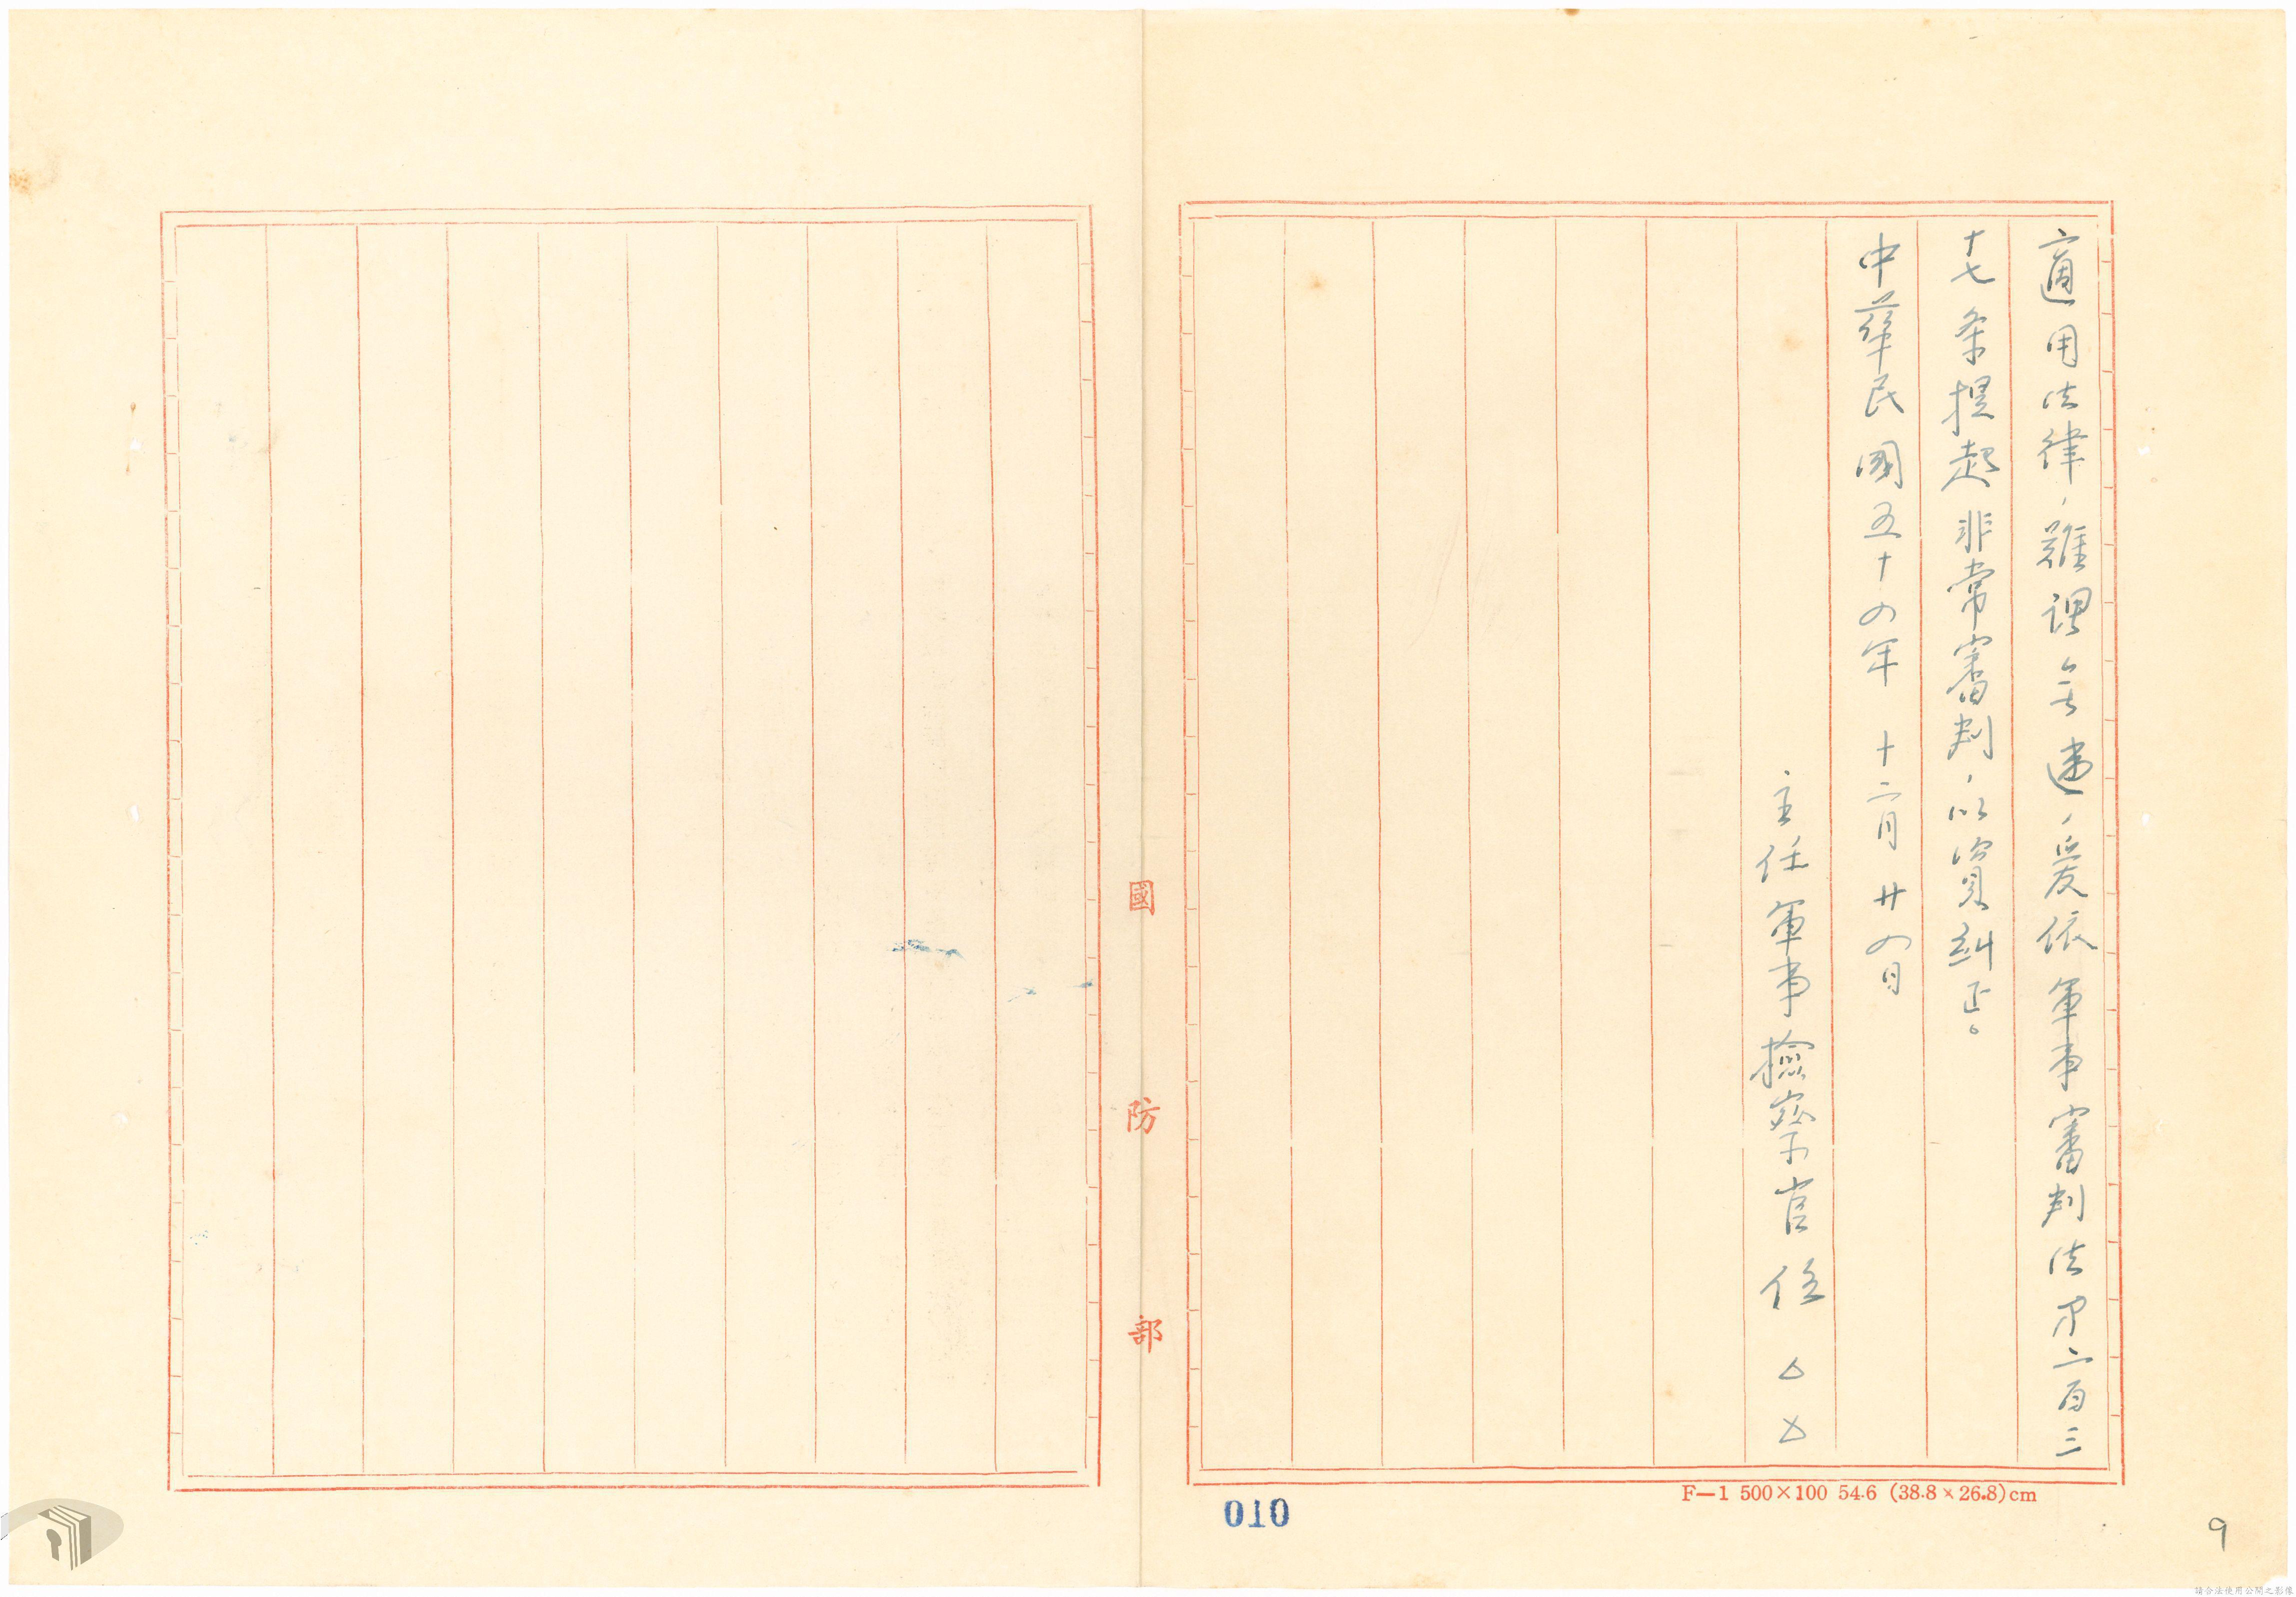 適用法律，難謂無違，爰依軍事審判法第二百三
十七条提起非常審判，以資糾正。
中華民國五十四年 十二月 廿四日
主任軍事檢察官 伍 △ △
國防部
F—1 500×100 54.6 (38.8×26.8)cm
010
9
請合法使用公開之影像